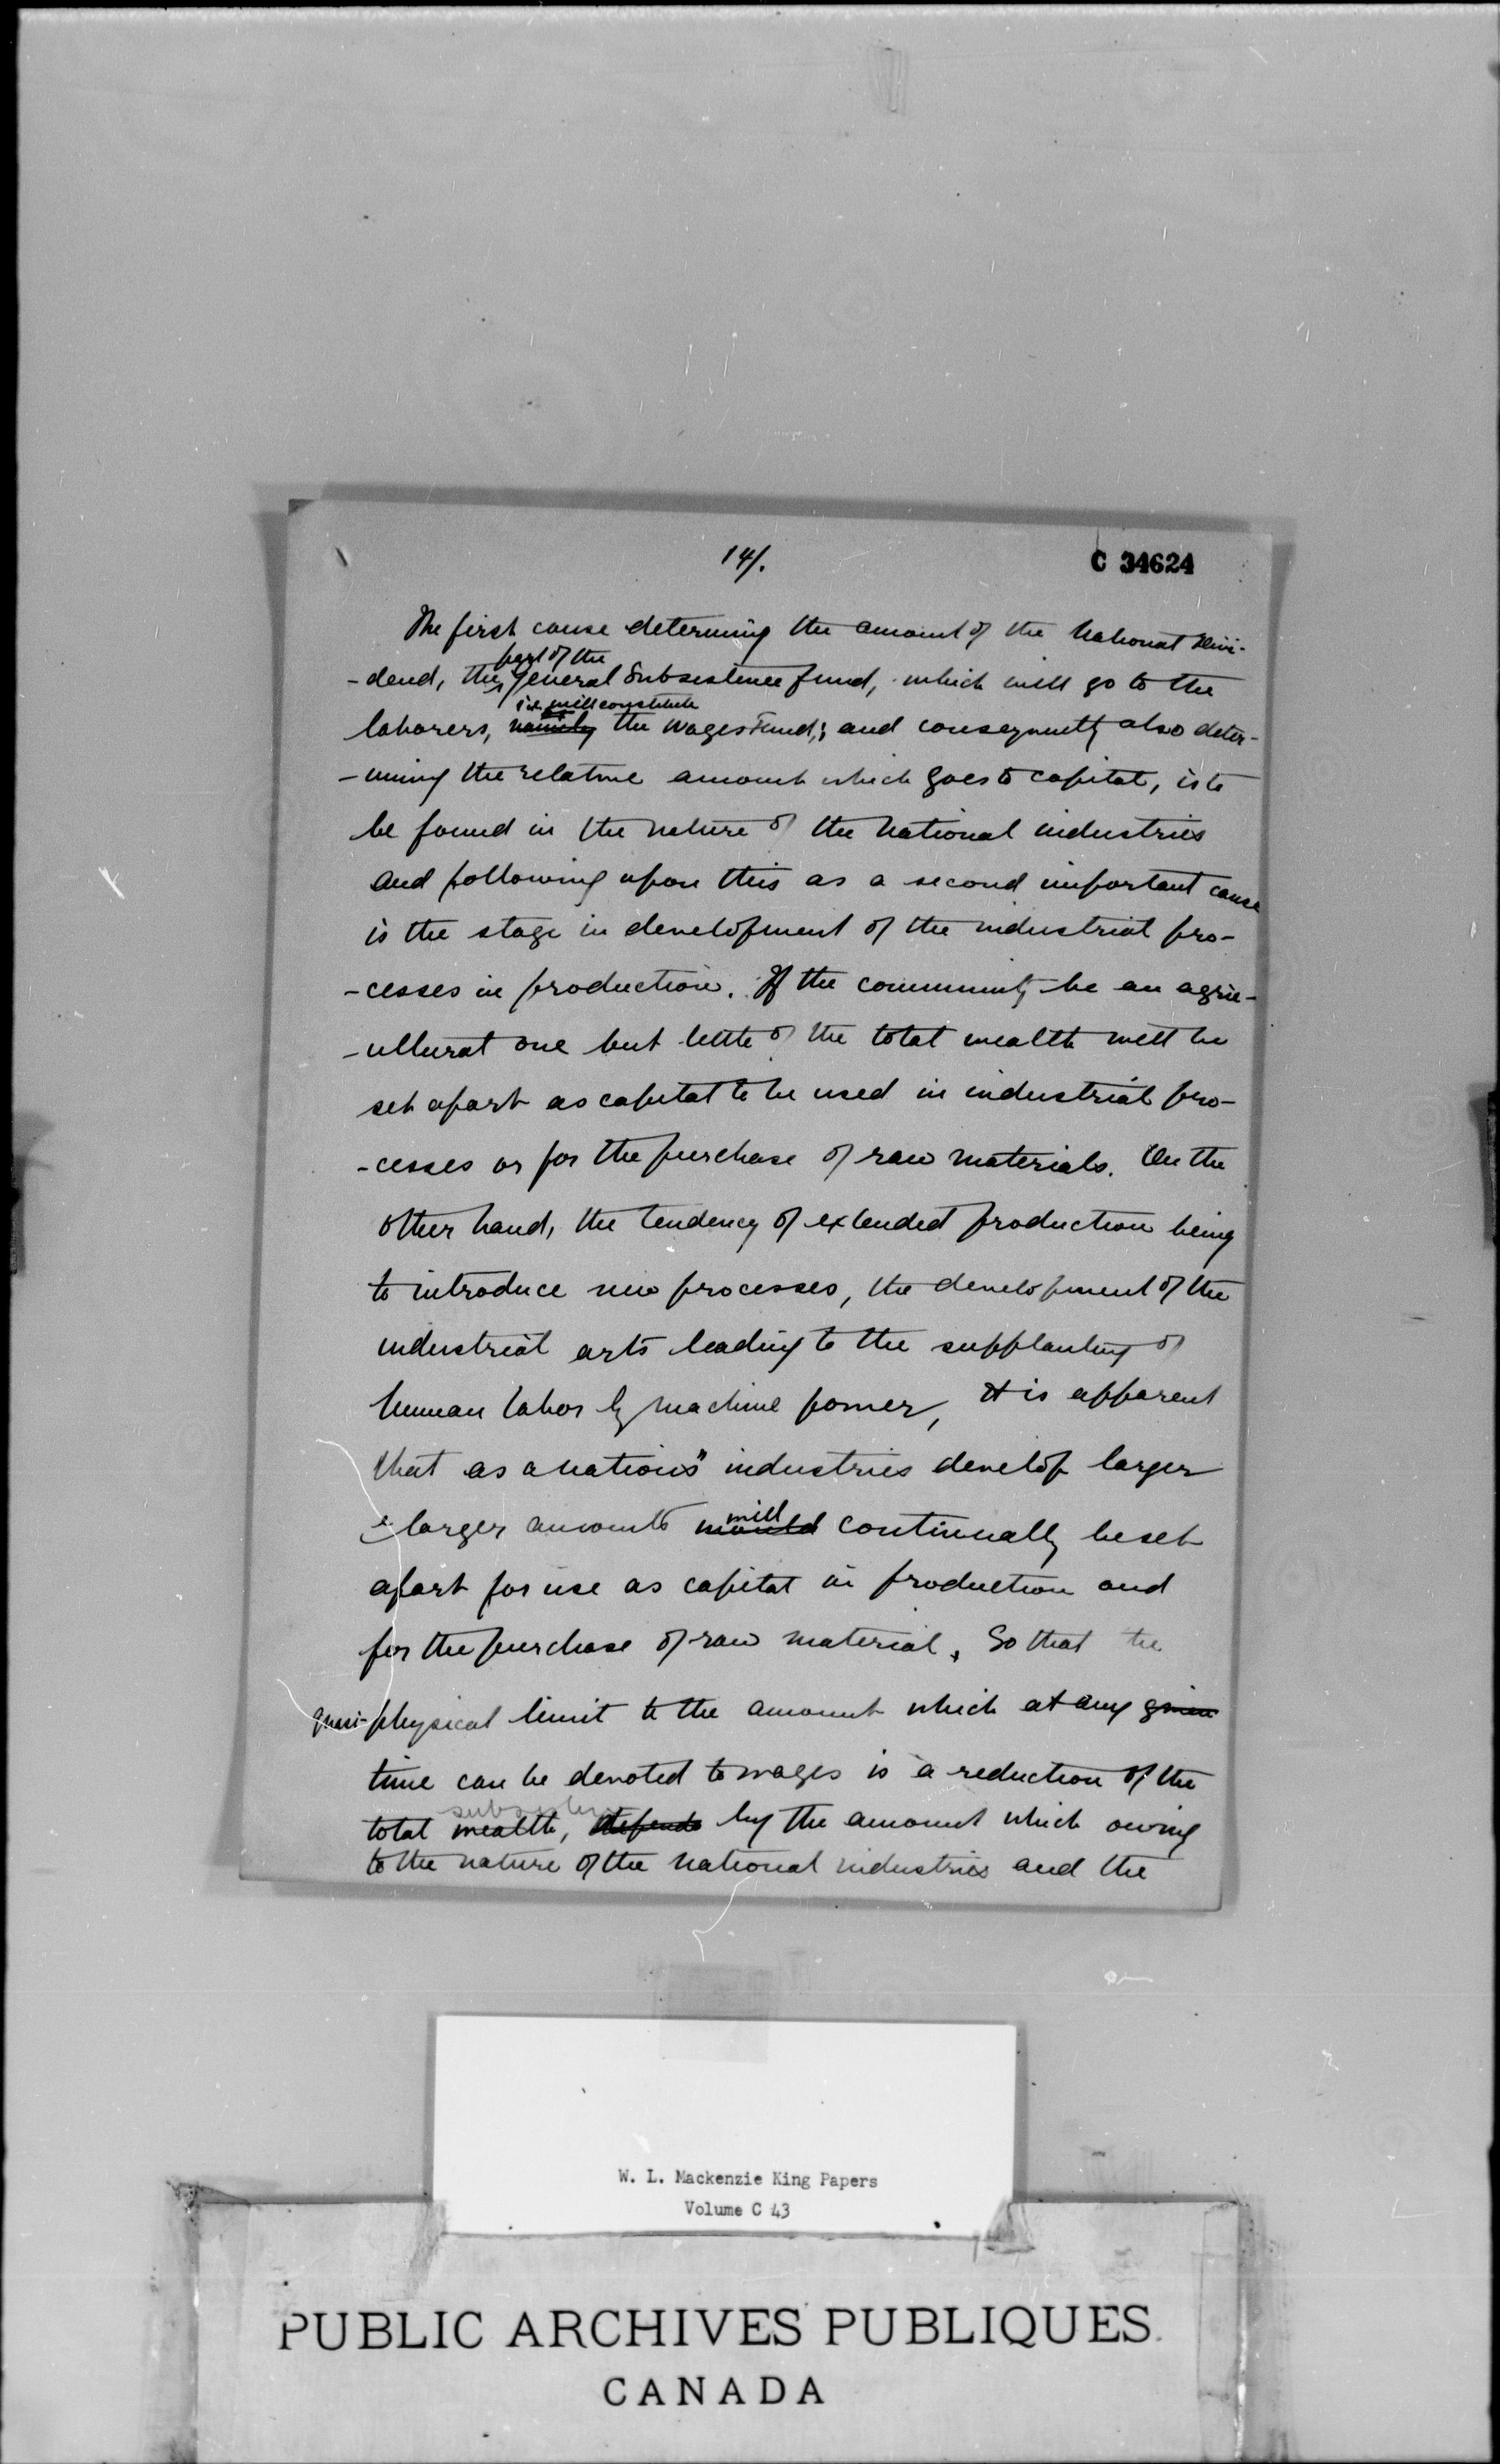 14/.
C 34624
The first cause determing the amount of the National Divi-
part of the
-dend, the general Subsistence fund, which will go to the
i.e. will constitute
laborers, namely the Wages Fund,; and consequently also deter-
-mining the relative amount which goes to capital, is to
be found in the nature of the National industries
and following upon this as a second important cause
is the stage in development of the industrial pro-
-cesses in production. If the community be an agric-
-ultural one but little of the total wealth will be
set apart as capital to be used in industrial pro-
-cesses or for the purchase of raw materials. On the
other hand, the tendency of extended production being
to introduce new processes, the development of the
industrial arts leading to the supplanting of
human labor by machine power, it is apparent
that as a nation's industries develop larger
will
& larger amounts would continually be set
apart for use as capital in production and
for the purchase of raw material. So that the
quasi-physical limit to the amount which at any given
time can be devoted to wages is a reduction of the
total wealth, depends by the amount which owing
to the nature of the national industries and the
W. L. Mackenzie King Papers
Volume C 43
PUBLIC ARCHIVES PUBLIQUES
CANADA